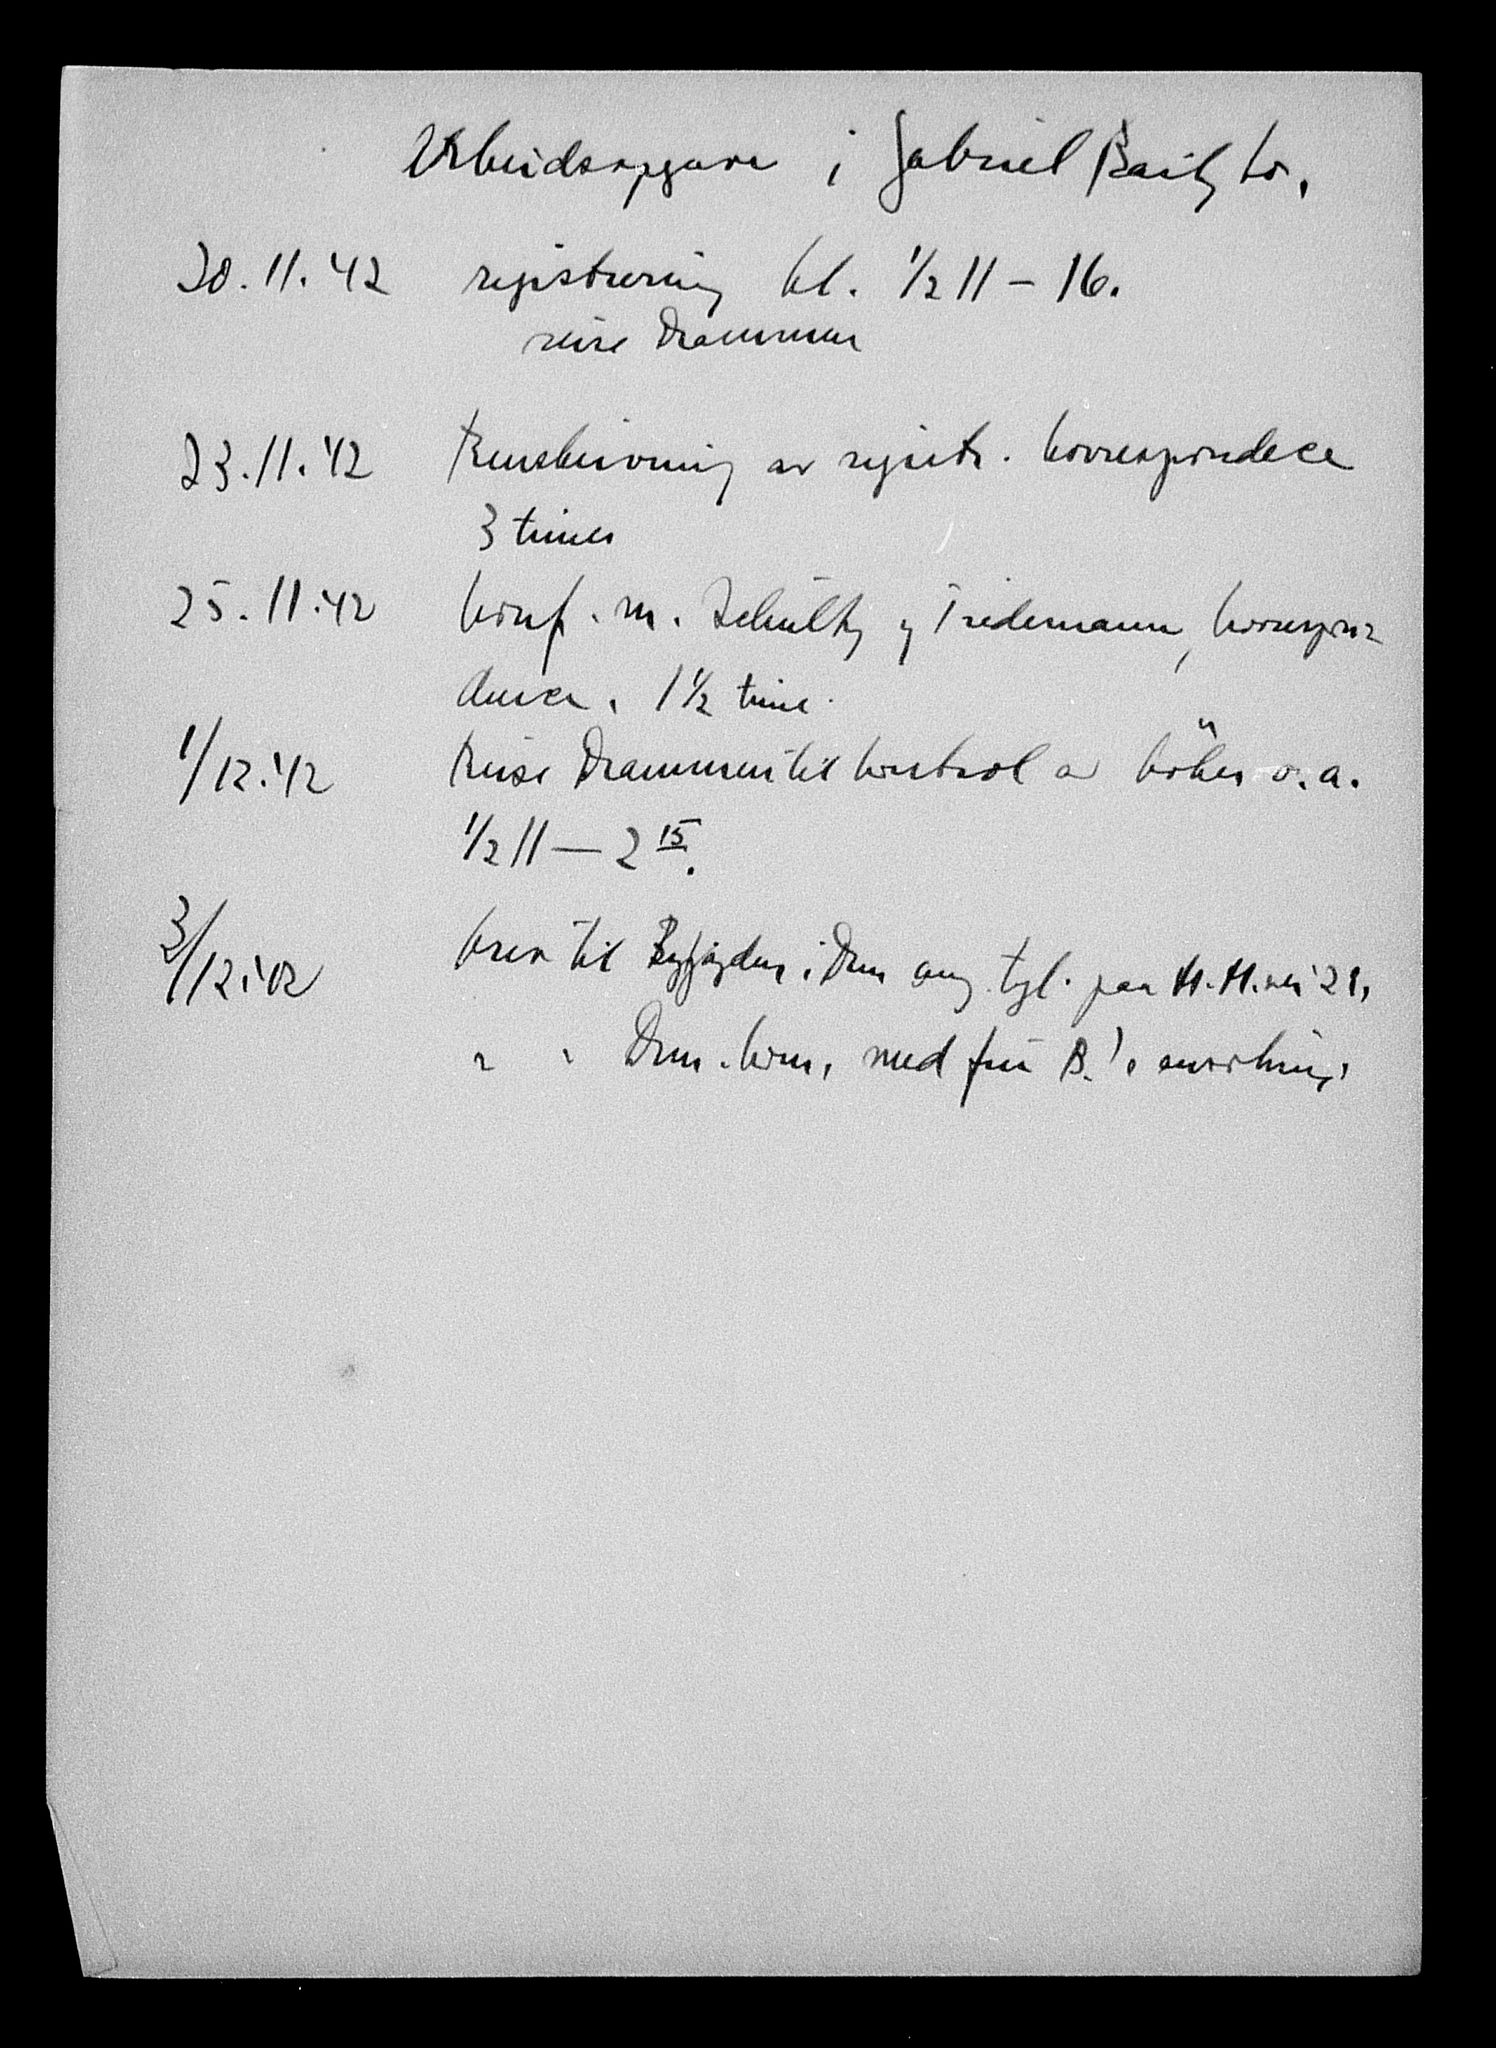 Arbeidsopgave i Gabriel Bo.
20.11.42 registrering kl. 1/2 11 – 16.
reise Drammen
23.11.42 Renskrivning av registr. korrespondece
3 timer
25.11.42 konf. m. Schultz og Tiedemann, korrespon
dence. 1 1/2 time.
1/12.42 Reise Drammen til kontrol av bøker o.a.
1/2 11 — 2 15.
3/12.42 brev til i Dmn ang. tgl. paa H.H.vei 21,
" " Drm. kom. med fru B.'s